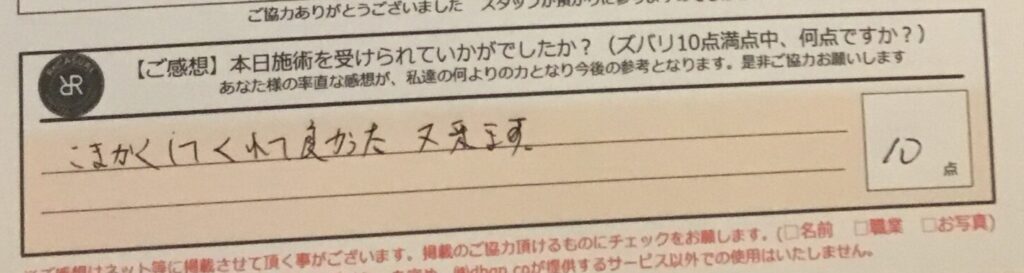 ご協力ありがとうございました
【ご感想】本日施術を受けられていかがでしたか？（ズバリ10点満点中、何点ですか？）
あなた様の率直な感想が、私達の何よりの力となり今後の参考となります。是非ご協力お願いします
こまかくしてくれて良かった 又来ます。
10
点
ご感想はネット等に掲載させて頂く事がございます。掲載のご協力頂けるものにチェックをお願します。(□名前 □職業 □お写真)
が提供するサービス以外での使用はいたしません。